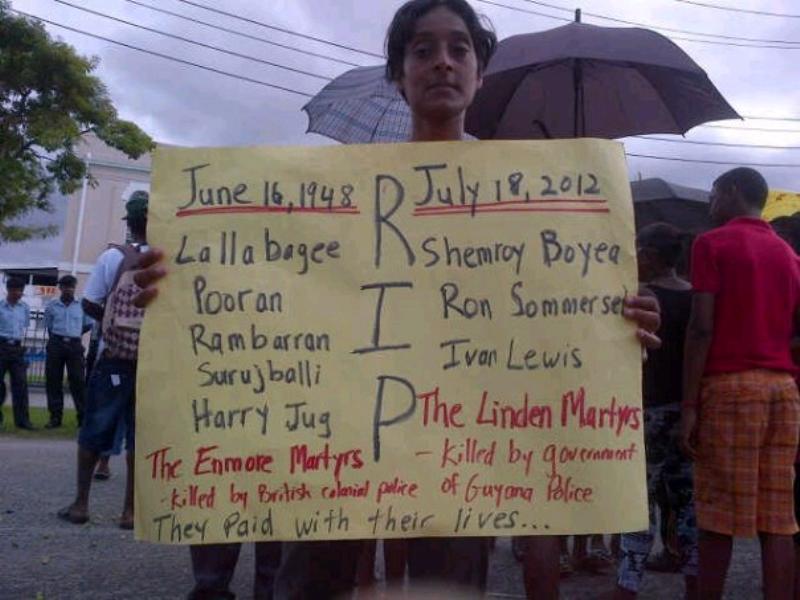 June 16, 1948
Lallabagee
Pooran
Rambarran
Surujballi
Harry Jug
The Enmore Martyrs
- killed by British colonial police
RIP
July 18, 2012
Shemroy Boyea
Ron Sommerse
Ivan Lewis
The Linden Martyrs
- killed by government
of Guyana Police
They Paid with their lives...